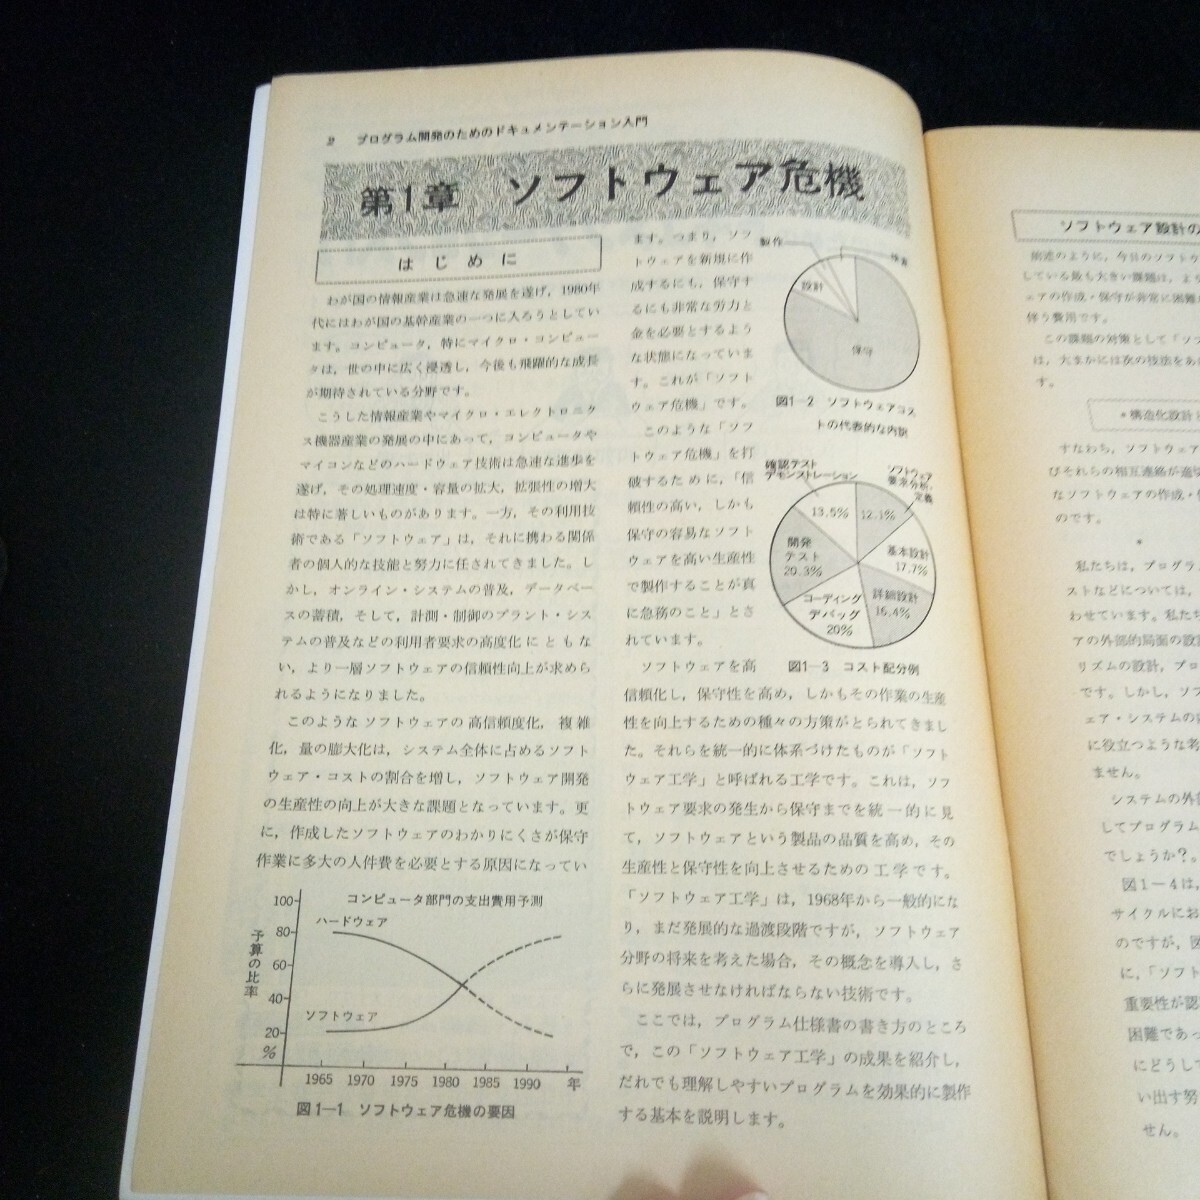 2　プログラム開発のためのドキュメンテーション入門
第1章　ソフトウェア危機
はじめに
わが国の情報産業は急速な発展を遂げ，1980年
代にはわが国の基幹産業の一つに入ろうとしてい
ます。コンピュータ，特にマイクロ・コンピュー
タは，世の中に広く浸透し，今後も飛躍的な成長
が期待されている分野です。
こうした情報産業やマイクロ・エレクトロニク
ス機器産業の発展の中にあって，コンピュータや
マイコンなどのハードウェア技術は急速な進歩を
遂げ，その処理速度・容量の拡大，拡張性の増大
は特に著しいものがあります。一方，その利用技
術である「ソフトウェア」は，それに携わる関係
者の個人的な技能と努力に任されてきました。し
かし，オンライン・システムの普及，データベー
スの蓄積，そして，計測・制御のプラント・シス
テムの普及などの利用者要求の高度化にともな
い，より一層ソフトウェアの信頼性向上が求めら
れるようになりました。
このようなソフトウェアの高信頼度化，複雑
化，量の膨大化は，システム全体に占めるソフト
ウェア・コストの割合を増し，ソフトウェア開発
の生産性の向上が大きな課題となっています。更
に，作成したソフトウェアのわかりにくさが保守
作業に多大の人件費を必要とする原因になってい
コンピュータ部門の支出費用予測
ハードウェア
ソフトウェア
予算の比率
100
80
60
40
20
%
1965 1970 1975 1980 1985 1990 年
図1-1　ソフトウェア危機の要因
ます。つまり，ソフ
トウェアを新規に作
成するにも，保守す
るにも非常な労力と
金を必要とするよう
な状態になっていま
す。これが「ソフト
ウェア危機」です。
このような「ソフ
トウェア危機」を打
破するために，「信
頼性の高い，しかも
保守の容易なソフト
ウェアを高い生産性
で製作することが真
に急務のこと」とさ
れています。
ソフトウェアを高
製作
設計
保守
図1-2　ソフトウェアコス
トの代表的な内訳
確認テスト
デモンストレーション
13.5%
ソフトウェア
要求分析，
定義
12.1%
基本設計
17.7%
詳細設計
16.4%
コーディング
デバッグ
20%
開発
テスト
20.3%
図1-3　コスト配分例
信頼化し，保守性を高め，しかもその作業の生産
性を向上するための種々の方策がとられてきまし
た。それらを統一的に体系づけたものが「ソフト
ウェア工学」と呼ばれる工学です。これは，ソフ
トウェア要求の発生から保守までを統一的に見
て，ソフトウェアという製品の品質を高め，その
生産性と保守性を向上させるための工学です。
「ソフトウェア工学」は，1968年から一般的にな
り，まだ発展的な過渡段階ですが，ソフトウェア
分野の将来を考えた場合，その概念を導入し，さ
らに発展させなければならない技術です。
ここでは，プログラム仕様書の書き方のところ
で，この「ソフトウェア工学」の成果を紹介し，
だれでも理解しやすいプログラムを効果的に製作
する基本を説明します。
ソフトウェア設計の
前述のように，今日のソフトウ
している最も大きい課題は，よ
ェアの作成・保守が非常に困難
伴う費用です。
この課題の対策として「ソフ
は，大まかには次の技法をあ
す。
*構造化設計
すなわち，ソフトウェア
びそれらの相互連絡が適切
なソフトウェアの作成・
のです。
*
私たちは，プログラ
ストなどについては，
わせています。私た
アの外部的局面の設
リズムの設計，プロ
です。しかし，ソフ
ェア・システムの
に役立つような考
ません。
システムの外
してプログラム
でしょうか？。
図1-4は，
サイクルにお
のですが，図
に，「ソフト
重要性が認
困難であっ
にどうして
い出す努
せん。